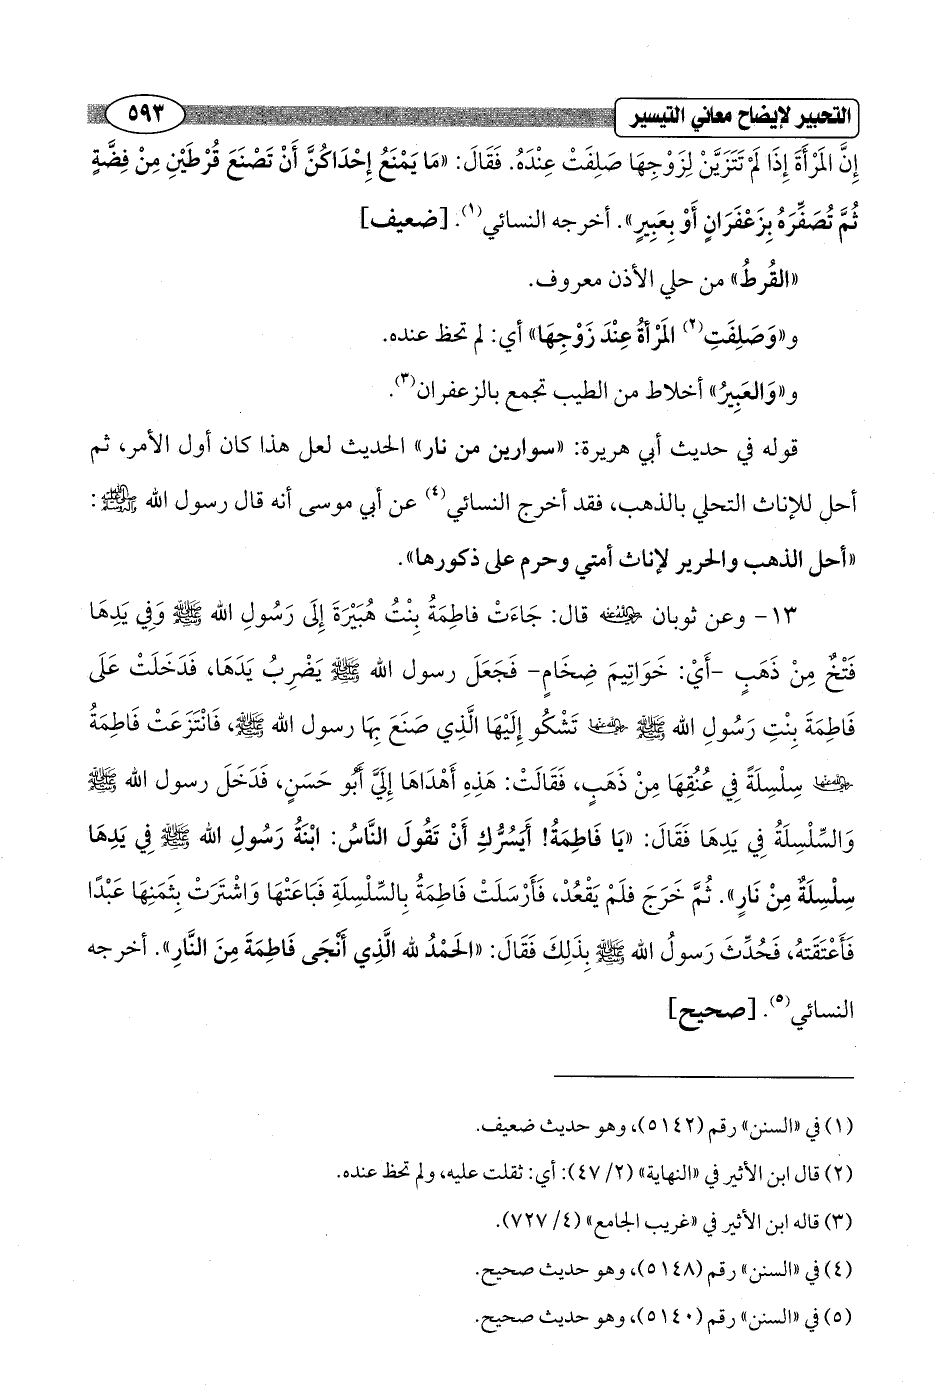 التحبير لإيضاح معاني التيسير ٥٩٣
إِنَّ المَرْأَةَ إِذَا لَمْ تَتَزَيَّنْ لِزَوْجِهَا صَلِفَتْ عِنْدَهُ. فَقَالَ: «مَا يَمْنَعُ إِحْدَاكُنَّ أَنْ تَصْنَعَ قُرْطَيْنِ مِنْ فِضَّةٍ
ثُمَّ تُصَفِّرَهُ بِزَعْفَرَانٍ أَوْ بِعَبِيرٍ». أخرجه النسائي(١). [ضعيف]
«القُرطُ» من حلي الأذن معروف.
و«وَصَلِفَتِ(٢) المَرْأَةُ عِنْدَ زَوْجِهَا» أي: لم تحظ عنده.
و«وَالعَبِيرُ» أخلاط من الطيب تجمع بالزعفران(٣).
قوله في حديث أبي هريرة: «سوارين من نار» الحديث لعل هذا كان أول الأمر، ثم
أحل للإناث التحلي بالذهب، فقد أخرج النسائي(٤) عن أبي موسى أنه قال رسول الله ﷺ:
«أحل الذهب والحرير لإناث أمتي وحرم على ذكورها».
١٣- وعن ثوبان رضي الله عنه قال: جَاءَتْ فاطِمَةُ بِنْتُ هُبَيْرَةَ إِلَى رَسُولِ الله ﷺ وَفِي يَدِهَا
فَتْخٌ مِنْ ذَهَبٍ -أَيْ: خَوَاتِيمَ ضِخَامٍ- فَجَعَلَ رسول الله ﷺ يَضْرِبُ يَدَهَا، فَدَخَلَتْ عَلَى
فَاطِمَةَ بِنْتِ رَسُولِ الله ﷺ رضي الله عنها تَشْكُو إِلَيْهَا الَّذِي صَنَعَ بِهَا رسول الله ﷺ، فَانْتَزَعَتْ فَاطِمَةُ
رضي الله عنها سِلْسِلَةً فِي عُنُقِهَا مِنْ ذَهَبٍ، فَقَالَتْ: هَذِهِ أَهْدَاهَا إِلَيَّ أَبُو حَسَنٍ، فَدَخَلَ رسول الله ﷺ
وَالسِّلْسِلَةُ فِي يَدِهَا فَقَالَ: «يَا فَاطِمَةُ! أَيَسُرُّكِ أَنْ تَقُولَ النَّاسُ: ابْنَةُ رَسُولِ الله ﷺ فِي يَدِهَا
سِلْسِلَةٌ مِنْ نَارٍ». ثُمَّ خَرَجَ فَلَمْ يَقْعُدْ، فَأَرْسَلَتْ فَاطِمَةُ بِالسِّلْسِلَةِ فَبَاعَتْهَا وَاشْتَرَتْ بِثَمَنِهَا عَبْدًا
فَأَعْتَقَتهُ، فَحُدِّثَ رَسولُ الله ﷺ بِذَلِكَ فَقَالَ: «الحَمْدُ لله الَّذِي أَنْجَى فَاطِمَةَ مِنَ النَّارِ». أخرجه
النسائي(٥). [صحيح]
(١) في «السنن» رقم (٥١٤٢)، وهو حديث ضعيف.
(٢) قال ابن الأثير في «النهاية» (٢/ ٤٧): أي: ثقلت عليه، ولم تحظ عنده.
(٣) قاله ابن الأثير في «غريب الجامع» (٤/ ٧٢٧).
(٤) في «السنن» رقم (٥١٤٨)، وهو حديث صحيح.
(٥) في «السنن» رقم (٥١٤٠)، وهو حديث صحيح.